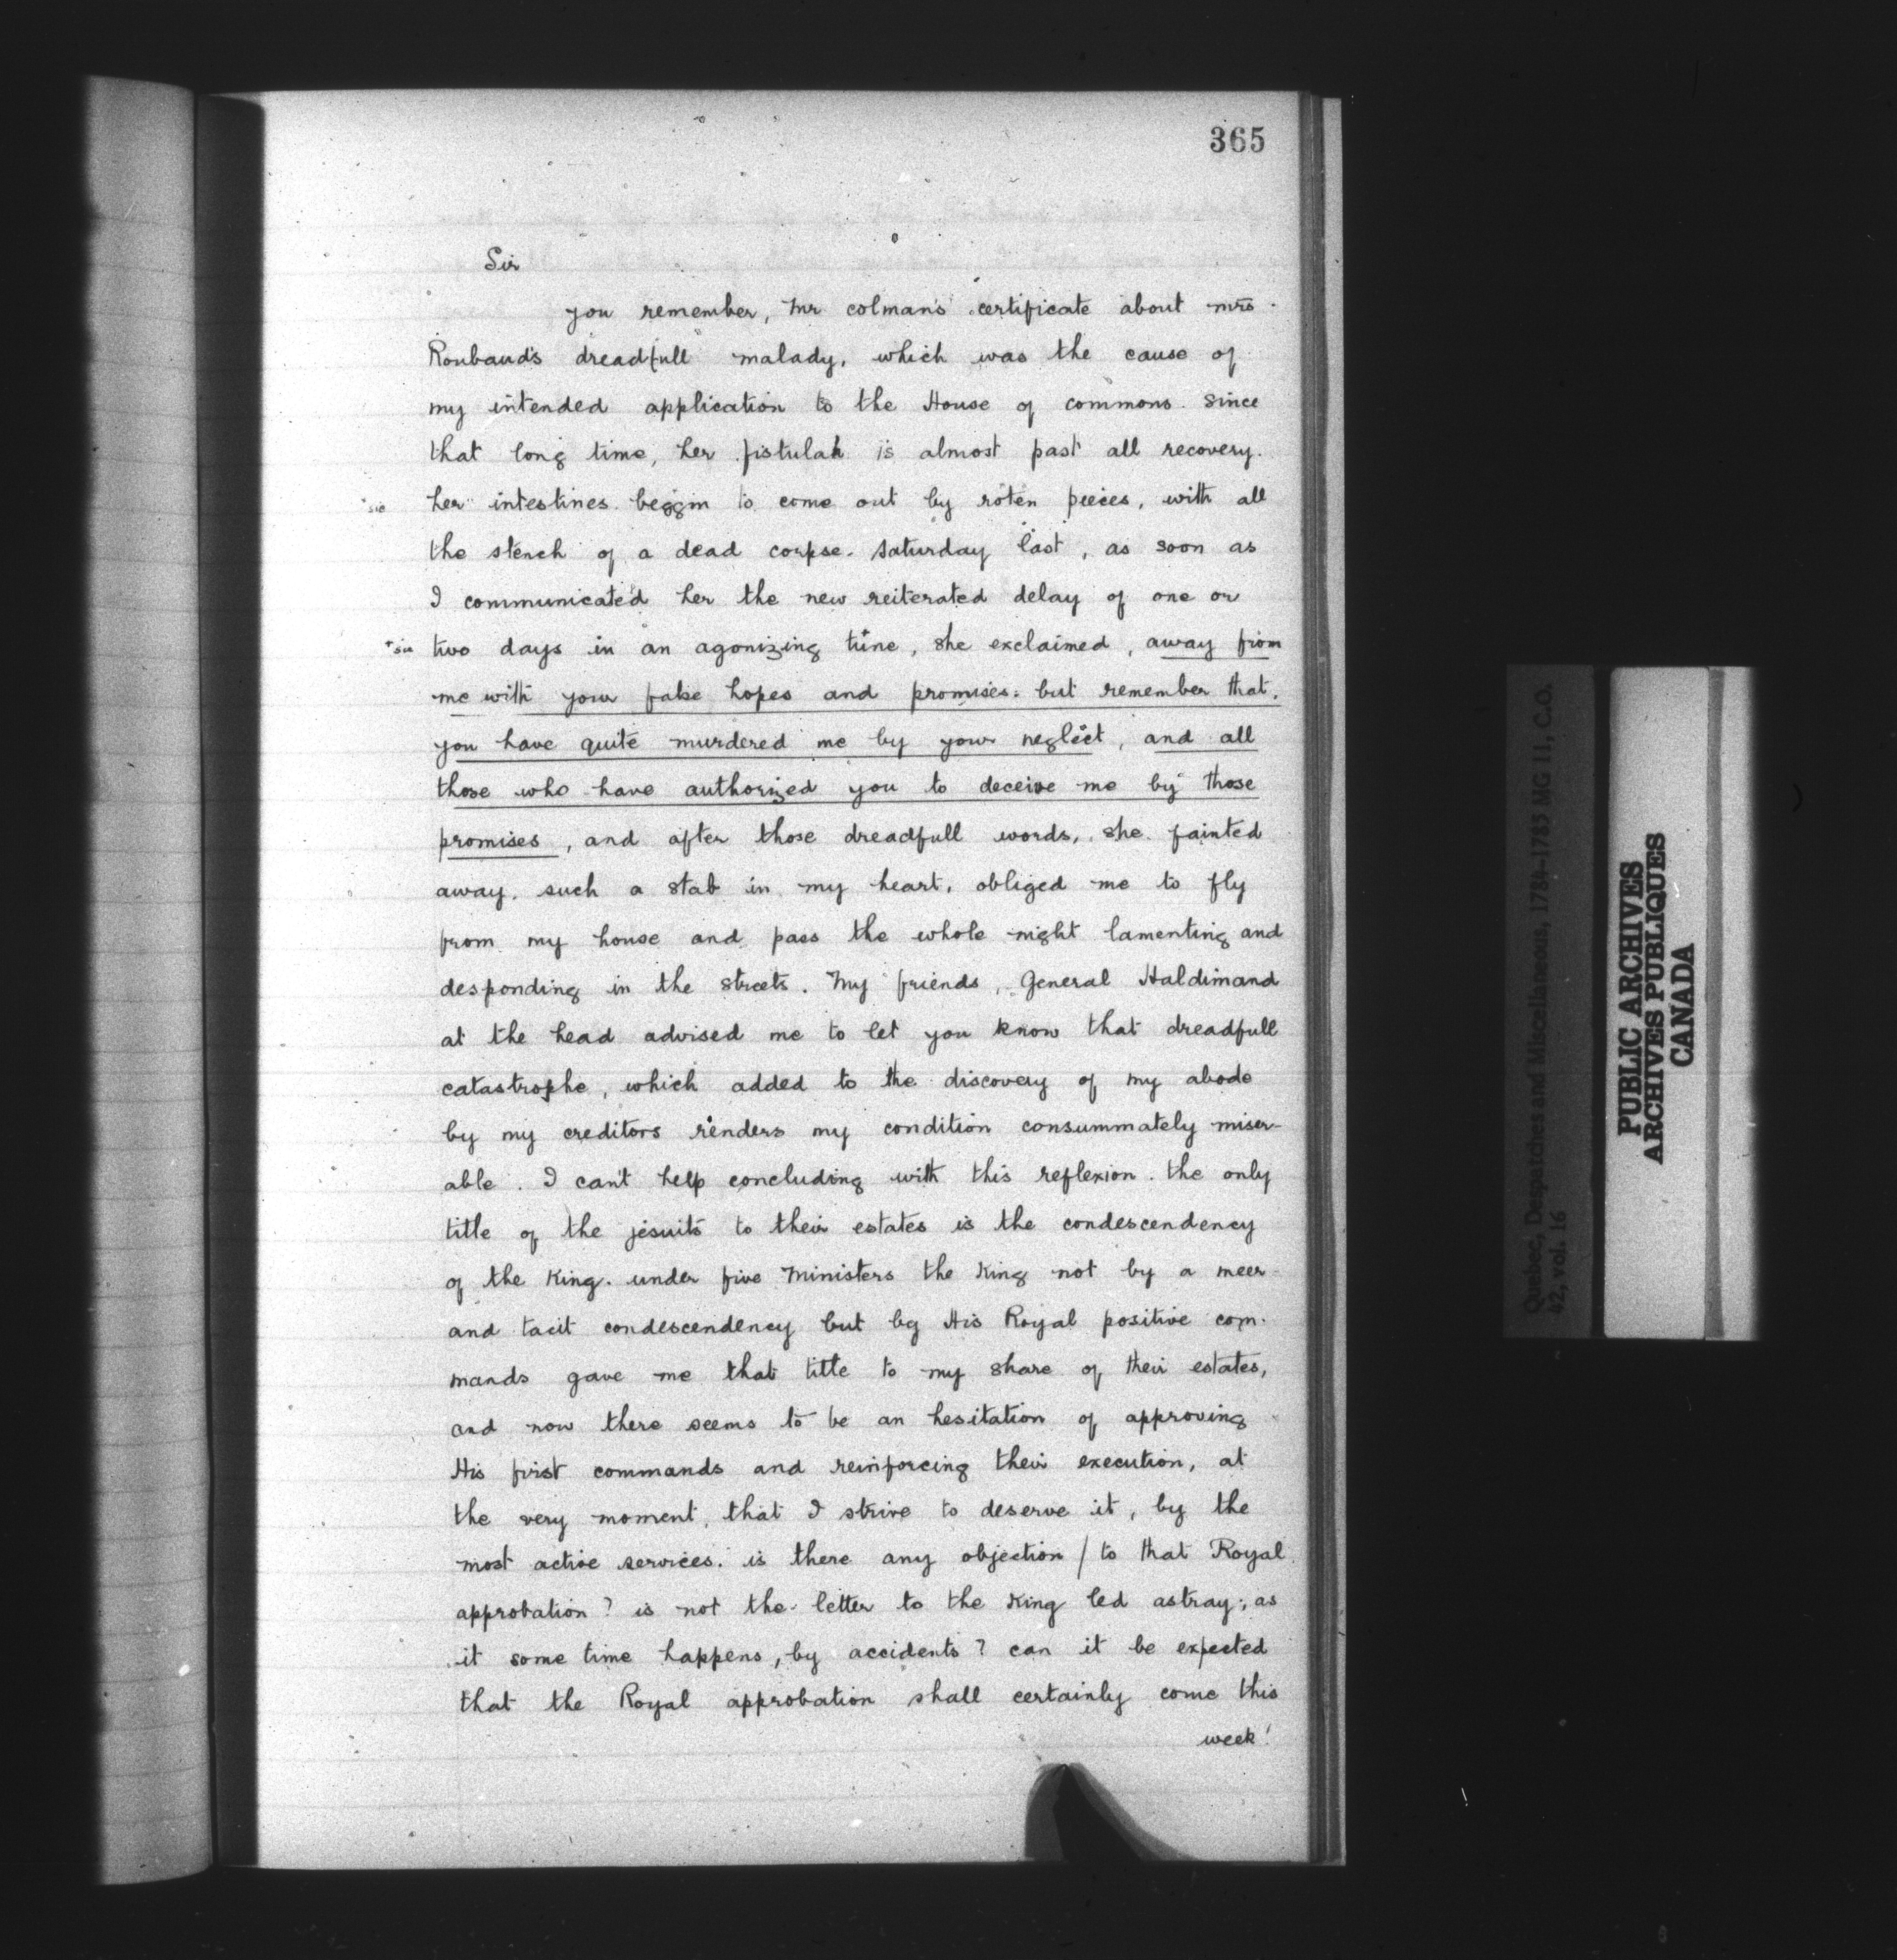 365
Sir
you remember, Mr colman's certificate about mrs
Roubaud's dreadfull malady, which was the cause of
my intended application to the House of commons. since
that long time, her fistulah is almost past all recovery.
"sic her" intestines beggin to come out by roten pieces, with all
the stench of a dead corpse. Saturday last, as soon as
I communicated her the new reiterated delay of one or
+sic two days in an agonizing tune, she exclaimed, away from
me with your false hopes and promises: but remember that,
you have quite murdered me by your neglect, and all
those who have authorized you to deceive me by those
promises, and after those dreadfull words, she fainted
away. such a stab in my heart, obliged me to fly
from my house and pass the whole night lamenting and
desponding in the streets. My friends, General Haldimand
at the head advised me to let you know that dreadfull
catastrophe, which added to the discovery of my abode
by my creditors renders my condition consummately miser-
able. I can't help concluding with this reflexion. the only
title of the jesuits to their estates is the condescendency
of the King. under five Ministers the King not by a meer
and tacit condescendency but by His Royal positive com-
mands gave me that title to my share of their estates,
and now there seems to be an hesitation of approving
His first commands and reinforcing their execution, at
the very moment, that I strive to deserve it, by the
most active services. is there any objection / to that Royal
approbation? is not the letter to the King led astray, as
it some time happens, by accidents? can it be expected
that the Royal approbation shall certainly come this
week!
Quebec, Despatches and Miscellaneous, 1784-1785 MG 11, C.O.
42, vol. 16
PUBLIC ARCHIVES
ARCHIVES PUBLIQUES
CANADA